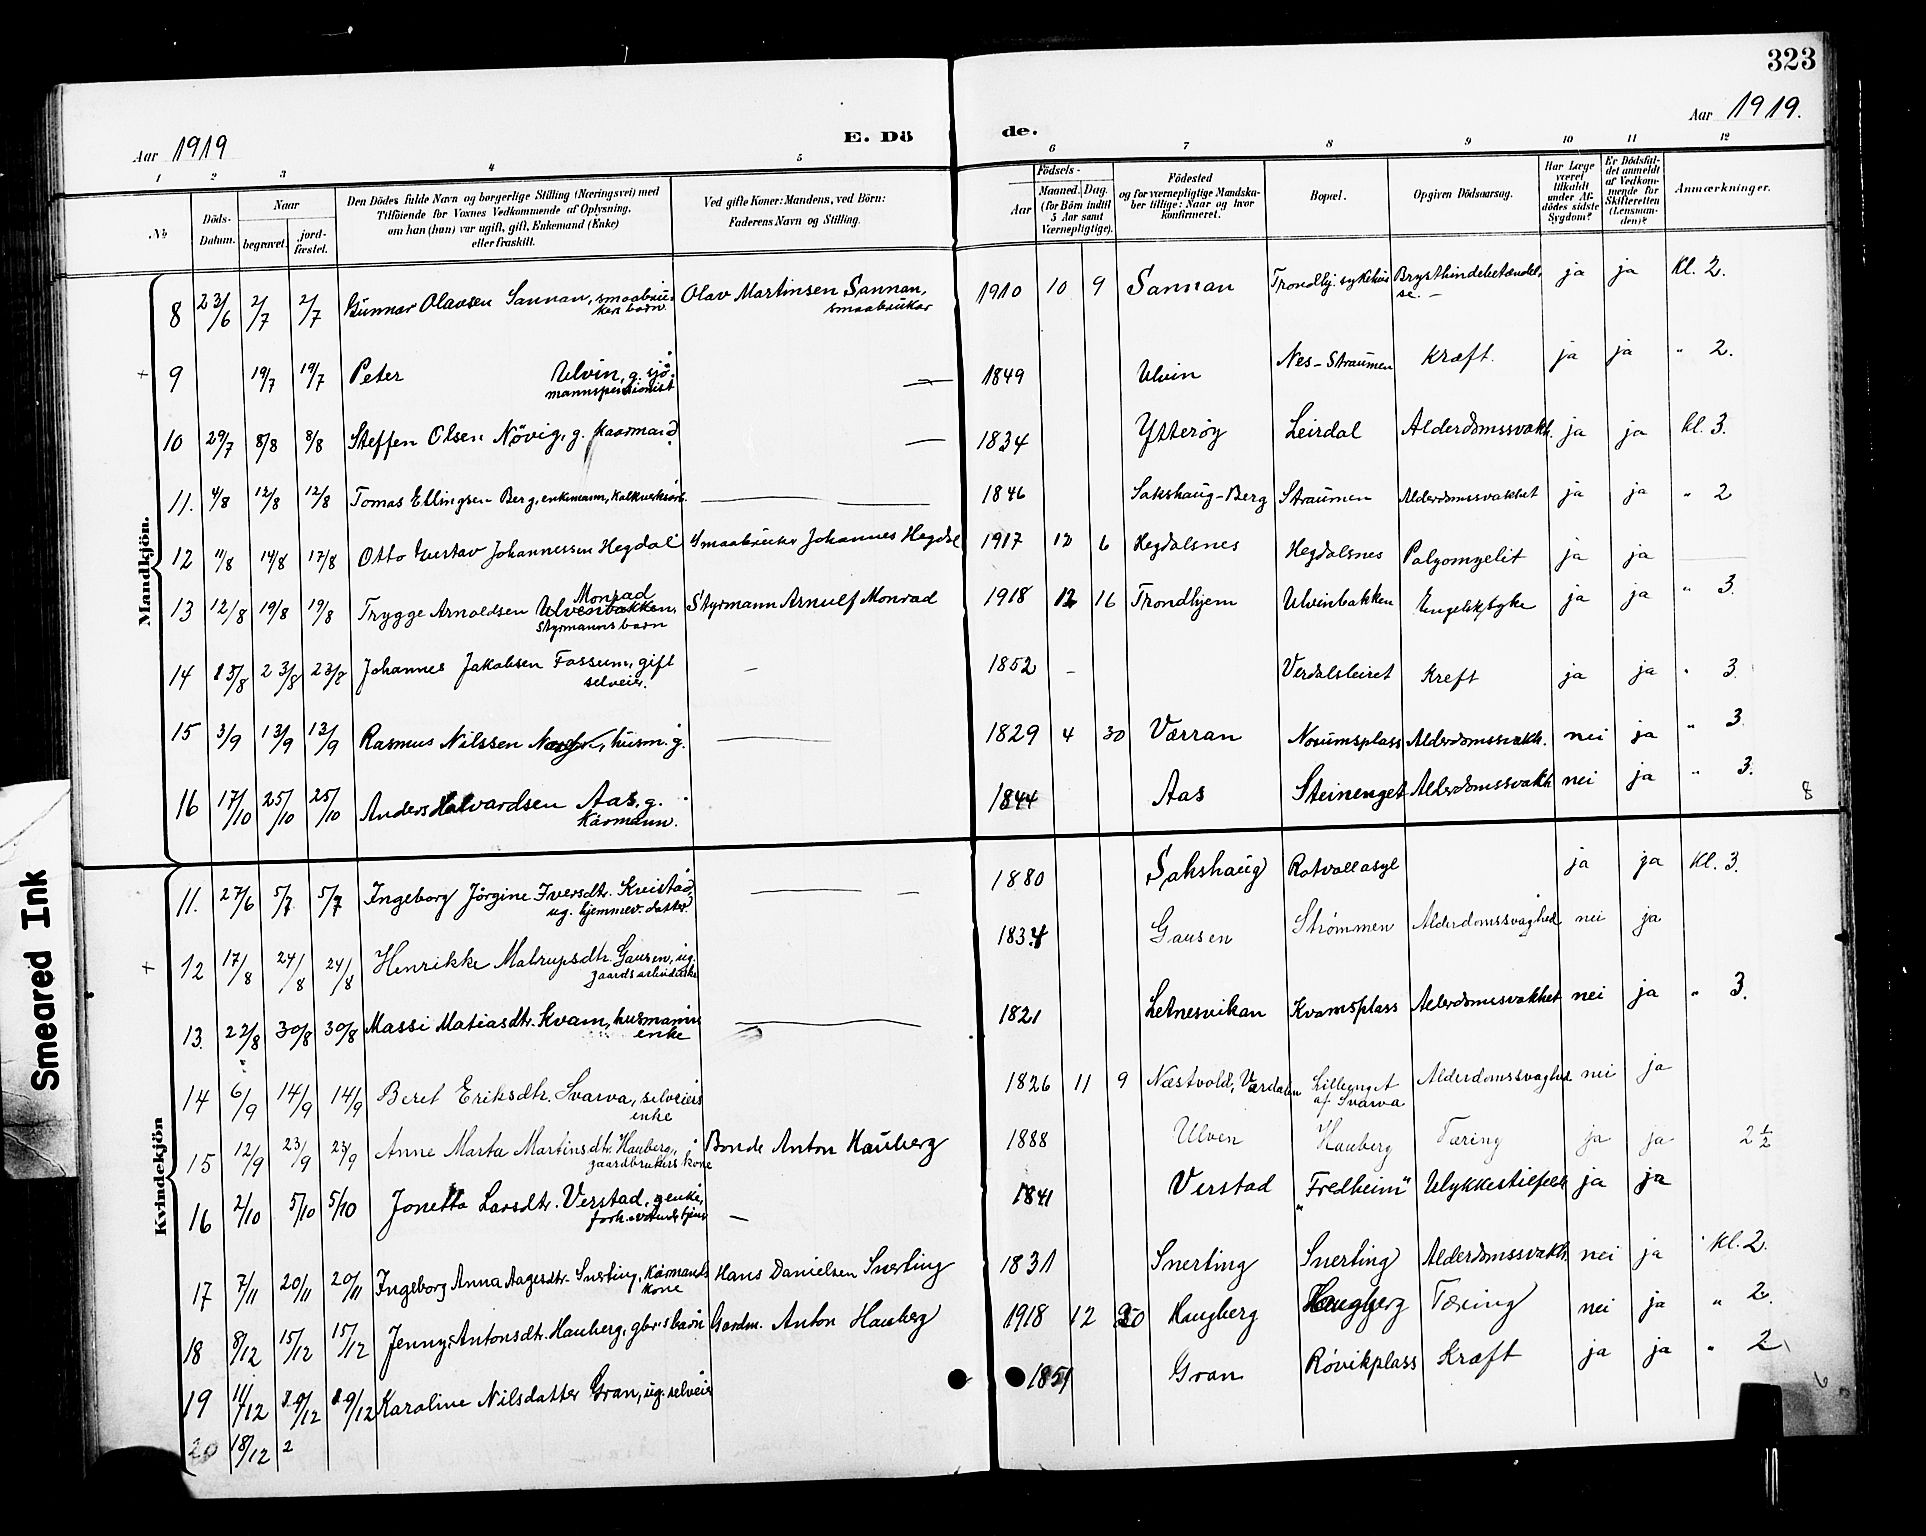 323
Aar 1919
E. Dö
de.
Aar 1919.
1 2 3 4 5 6 7 8 9 10 11 12
No
Döds-Datum.
Naar
begravet.
jord-fæstet.
Den Dödes fulde Navn og borgerlige Stilling (Næringsvei) med
Tilföiende for Voxnes Vedkommende af Oplysning,
om han (hun) var ugift, gift, Enkemand (Enke)
eller fraskilt.
Ved gifte Koner: Mandens, ved Börn:
Faderens Navn og Stilling.
Födsels-
Aar
Maaned. Dag.
(for Börn indtil
5 Aar samt
Værnepligtige).
Födested
og for værnepligtige Mandska-
ber tillige: Naar og hvor
konfirmeret.
Bopæl.
Opgiven Dödsaarsag.
Har Læge
været
tilkaldt
under Af-
dödes sidste
Sygdom?
Er Dödsfal-
det anmeldt
af Vedkom-
mende for
Skifteretten
(Lensman-
den)?
Anmærkninger.
Mandkjön.
8 23/6 2/7 2/7 Gunnar Olavsen Sannan, smaabru-
kers barn. Olav Martinsen Sannan,
smaabruker 1910 10 9 Sannan Trondhj. sykehus Brysthindebetændel-
se. — ja ja Kl. 2.
+ 9 19/7 19/7 Peter Ulvin, g. sjö-
mannspensionist — 1849 Ulvin Nes-Straumen Kræft. ja ja " 2.
10 29/7 8/8 8/8 Steffen Olsen Növig, g. kaarmand. — 1834 Ytteröy Leirdal Alderdomssvakh. ja ja kl. 3.
11. 4/8 12/8 12/8 Tomas Ellingsen Berg, enkemann, — 1846 Sakshaug-Berg Straumen Alderdomssvakhet ja ja " 2
12 11/8 14/8 17/8 Otto Gustav Johannessen Hegdal Smaabruker Johannes Hegdal 1917 12 6 Hegdalsnes Hegdalsnes Polyomyelit ja ja —
13 12/8 19/8 19/8 Trygge Arnoldsen Ulvenbakken, Monrad
styrmanns barn Styrmann Arnulf Monrad 1918 12 16 Trondhjem Ulvinbakken Engelsksyke ja ja " 3.
14 23/8 23/8 Johannes Jakobsen Fossum, gift
selveier. — 1852 — Verdalsleiret Kreft ja ja " 3.
15 3/9 13/9 13/9 Rasmus Nilssen husm. g. — 1829 4 30 Værran Nosumsplass Alderdomssvakh. nei ja " 3.
16 17/10 25/10 25/10 Anders Halvardsen Aas, g.
Kårmann. 1844 Aas Steinenget Alderdomssvakh nei ja " 3.
8
Kvindekjön
11. 27/6 5/7 5/7 Ingeborg Jörgine Iversdtr. Kvistad,
ug. hjemmev. datter. — 1880 Sakshaug Rotvoll asyl ja ja Kl. 3.
+ 12 17/8 24/8 24/8 Henrikke Gausen, ug.
gaardsarbeiderske 1834 Gausen Strømmen Alderdomssvaghed nei ja
13. 22/8 30/8 30/8 Massi Matiasdtr. Kvam, husmanns
enke — 1821 Letnesvikan Kvamsplass Alderdomssvakhet nei ja " 3.
14 6/9 14/9 14/9 Beret Eriksdtr. Svarva, selveiers
enke 1826 11 9 Næstvold, Værdalen Lillenget
af Svarva Alderdomssvaghed nei ja
15 12/9 23/9 23/9 Anne Marta Martinsdtr. Hauberg,
gaardbrukers kone Bonde Anton Hauberg 1888 Ulven Hauberg Tæring ja ja 2 1/2
16 2/10 5/10 5/10 Jonetta Larsdtr. Verstad, g. enke, — 1841 Verstad "Fredheim" Ulykkestilfelle ja ja
17 7/11 20/11 20/11 Ingeborg Anna Aagesdtr. Snerting, Kårmands
kone Hans Danielsen Snerting 1831 Snerting Snerting Alderdomssvakh. nei ja kl. 2.
18 8/12 15/12 15/12 Jenny Antonsdtr. Hauberg, gbr.s barn Gardm. Anton Hauberg 1918 12 Haugberg Haugberg Tæring nei ja " 2.
19 11/12 20/12 20/12 Karoline Nilsdatter Gran, ug. selveier 1851 Gran Rövikplass Kræft ja ja " 2
20 18/12 2
6
Smeared Ink